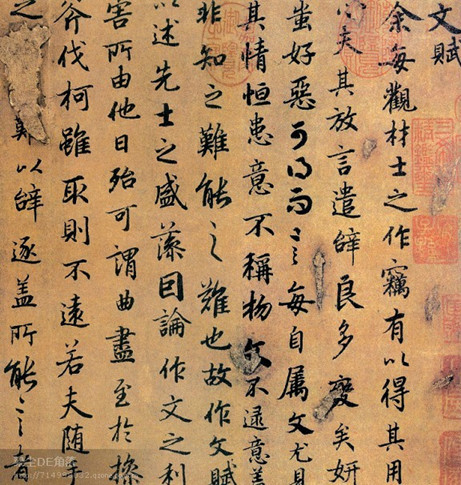 文賦
余每觀材士之作竊有以得其用
心夫其放言遣辝良多變矣妍
蚩好惡可得而言每自属文尤見
其情恒患意不稱物文不逮意盖
非知之難能之難也故作文賦
以述先士之盛藻因論作文之利
害所由他日殆可謂曲盡至於操
斧伐柯雖取則不遠若夫随手
之難以辝逐盖所能言者